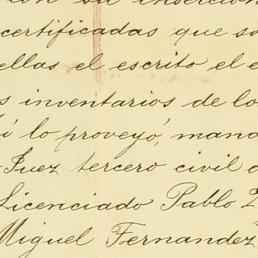 con su insercion
certificadas que so
ellas el escrito el e
s inventarios de lo
í lo proveyó, mand
Juez tercero civil d
Licenciado Pablo
Miguel Fernandez